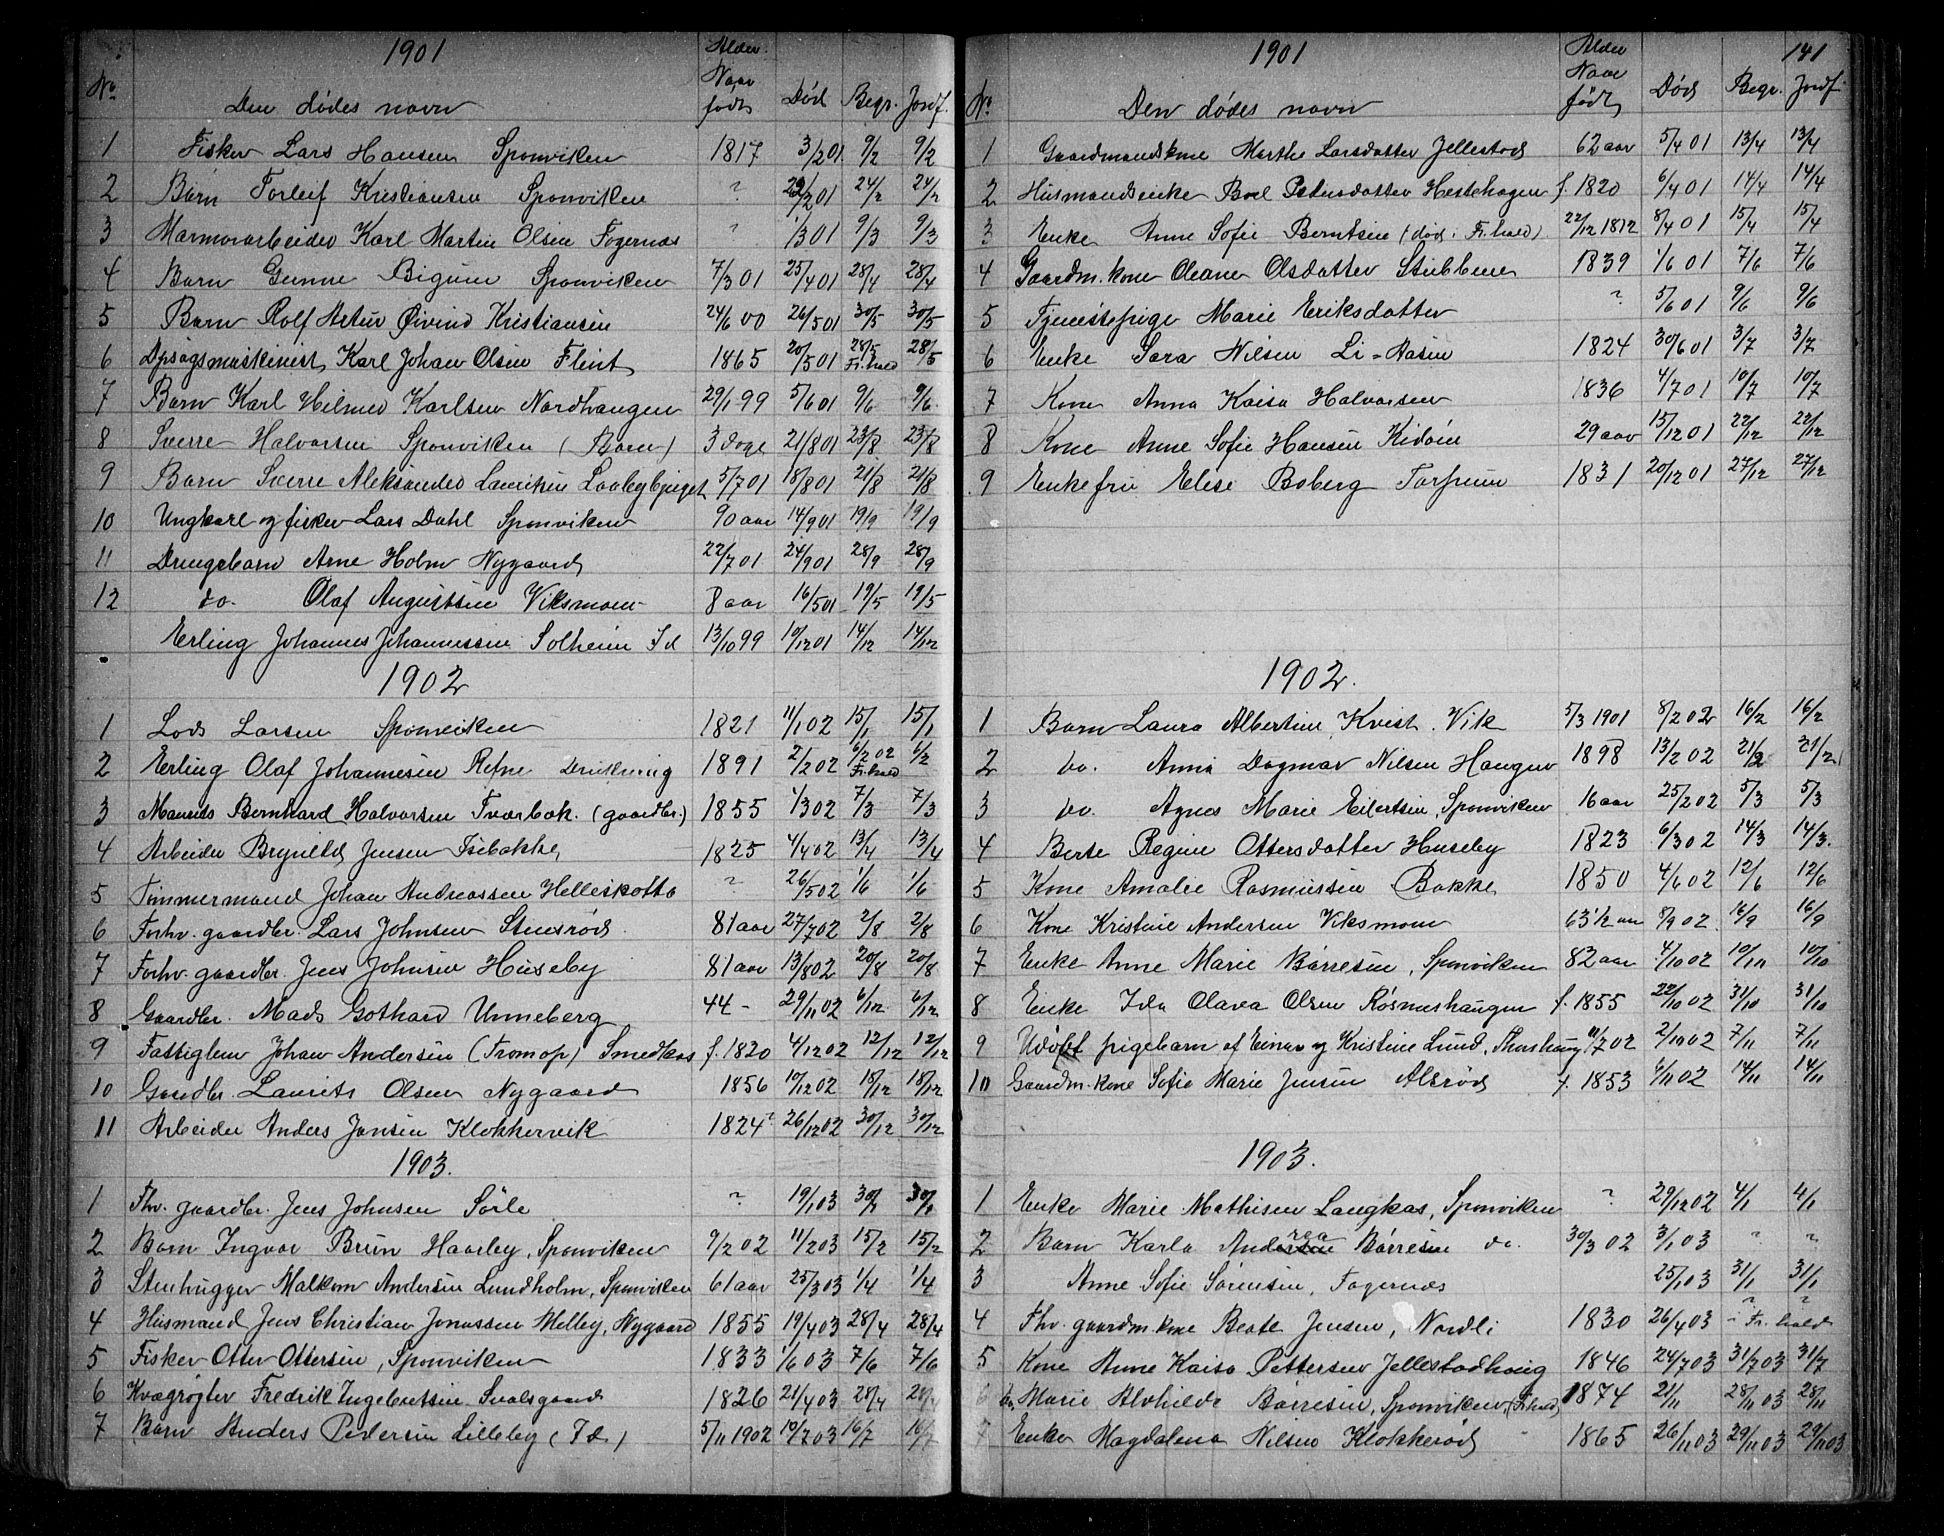 1901
No Den dødes navn Alder Naar født Død Begr. Jordf.
1 Fisker Lars Hansen Sponviken 1817 3/2 01 9/2 9/2
2 Barn Torleif Kristiansen Sponviken ? 2/2 01 24/2 24/2
3 Marmorarbeider Karl Martin Olsen Fogernæs ? 1/3 01 9/3 9/3
4 Barn Gunne Sponviken 7/3 01 25/4 01 28/4 28/4
5 Barn Rolf Artur Øivind Kristiansen 24/6 00 26/5 01 30/5 30/5
6 Opsagsmaskinist Karl Johan Olsen Flint 1865 20/5 01 28/5 Fr.hald 28/5
7 Barn Karl Hilmer Karlsen Nordhaugen 29/1 99 5/6 01 9/6 9/6
8 Sverre Halvorsen Sponviken (Barn) 3 dage 21/8 01 23/8 23/8
9 Barn Sverre Aleksander Lauritsen 5/7 01 18/8 01 21/8 21/8
10 Ungkarl og fisker Lars Dahl Sponviken 90 aar 14/9 01 19/9 19/9
11 Drengebarn Arne Holm Nygaard 22/7 01 24/9 01 28/9 28/9
12 do. Olaf Augustsen Viksmoen 8 aar 16/5 01 19/5 19/5
Erling Johannes Johannessen Solheim Id 13/10 99 10/12 01 14/12 14/12
1902
1 Lods Larsen Sponviken 1821 11/1 02 15/1 15/1
2 Erling Olaf Johannesen Refne Drukning 1891 2/2 02 6/2 02 Fr.hald 6/2
3 Maurits Bernhard Halvorsen Tværbæk. (gaardbr.) 1855 1/3 02 7/3 7/3
4 Arbeider Brynild Jensen Isebakke 1825 4/4 02 13/4 13/4
5 Timmermand Johan Andreassen Helleskotta ? 26/5 02 1/6 1/6
6 Forhv. gaardbr. Lars Johnsen Stensrød 81 aar 27/7 02 2/8 2/8
7 Forhv. gaardbr. Jens Johnsen Huseby 81 aar 13/8 02 20/8 20/8
8 Gaardbr. Mads Gothard Unneberg 44 - 29/11 02 6/12 6/12
9 Fattiglem Johan Andersen (Fromop) Smedkas f. 1820 4/12 02 12/12 12/12
10 Gaardbr. Laurits Olsen Nygaard 1856 10/12 02 18/12 18/12
11 Arbeider Anders Jansen Klokkervik 1824? 26/12 02 30/12 30/12
1903.
1 Fhv. gaardbr. Jens Johnsen Sørle ? 19/1 03 30/1 30/1
2 Barn Ingvar Brun Haarby, Sponviken 9/2 02 11/2 03 15/2 15/2
3 Stenhugger Malkom Andersen Lundholm, Sponviken 61 aar 25/3 03 1/4 1/4
4 Husmand Jens Christian Jonassen Melby, Nygaard 1855 19/4 03 28/4 28/4
5 Fisker Otter Ottersen, Sponviken 1833 1/6 03 7/6 7/6
6 Kvægrøgter Fredrik Ingebretsen Svalsgaard 1826 21/4 03 28/4 28/4
7 Barn Anders Pedersen Lilleby (Id.) 5/11 1902 10/7 03 16/7 16/7
1901 141
No. Den dødes navn Alder Naar født Død Begr. Jordf.
1 Gaardmandskone Marthe Larsdatter Jellestad 62 aar 5/4 01 13/4 13/4
2 Husmandsenke Boel Pedersdatter Hestehagen f. 1820 6/4 01 14/4 14/4
3 Enke Anne Sofie Berntsen (død i Fr.hald) 22/12 1812 8/4 01 15/4 15/4
4 Gaardm.kone Oleane Olsdatter Stubbene 1839 1/6 01 7/6 7/6
5 Tjenestepige Marie Eriksdatter ? 5/6 01 9/6 9/6
6 Enke Sara Nilsen Li-Aasen 1824 30/6 01 3/7 3/7
7 Kone Anna Kaisa Halvorsen 1836 4/7 01 10/7 10/7
8 Kone Anne Sofie Hansen 29 aar 15/12 01 22/12 22/12
9 Enkefru Elise Boberg Torpum 1831 20/12 01 27/12 27/12
1902.
1 Barn Laura Albertine Kvist. Vik 5/3 1901 8/2 02 16/2 16/2
2 do. Anna Dagmar Nilsen Haugen 1898 13/2 02 21/2 21/2
3 do. Agnes Marie Eilertsen, Sponviken 16 aar 25/2 02 5/3 5/3
4 Berte Regine Ottersdatter Huseby 1823 6/3 02 14/3 14/3.
5 Kone Amalie Rasmussen Bakke 1850 4/6 02 12/6 12/6
6 Kone Kristine Andersen Viksmoen 63 1/2 aar 8/9 02 16/9 16/9
7 Enke Anne Marie Børresen, Sponviken 82 aar 4/10 02 10/10 10/10
8 Enke Ida Olava Olsen Røsneshaugen f. 1855 22/10 02 31/10 31/10
9 Udøbt pigebarn af Einar og Kristine Lund, Thorshaug 11/7 02 2/10 02 7/11 7/11
10 Gaardm.kone Sofie Marie Jensen Alsrød f. 1853 6/11 02 14/11 14/11
1903.
1 Enke Marie Mathisen Langkas, Sponviken ? 29/12 02 4/1 4/1
2 Barn Karla Andrea Børresen do. 30/3 02 3/1 03 " "
3 Anne Sofie Sørensen, Fagernæs 25/1 03 31/1 31/1
4 Fhv. gaardm.kone Beate Jensen, Nordli 1830 26/4 03 ? ? - Fr.hald
5 Kone Anne Kaisa Pettersen Jellestadhaug 1846 24/7 03 31/7 03 31/7
6 do. Marie Alvhilde Børresen, Sponviken (Fr.hald) 1874 21/11 28/11 03 28/11
7 Enke Magdalena Nilsen Klokkerød 1865 26/11 03 29/11 03 29/11 03